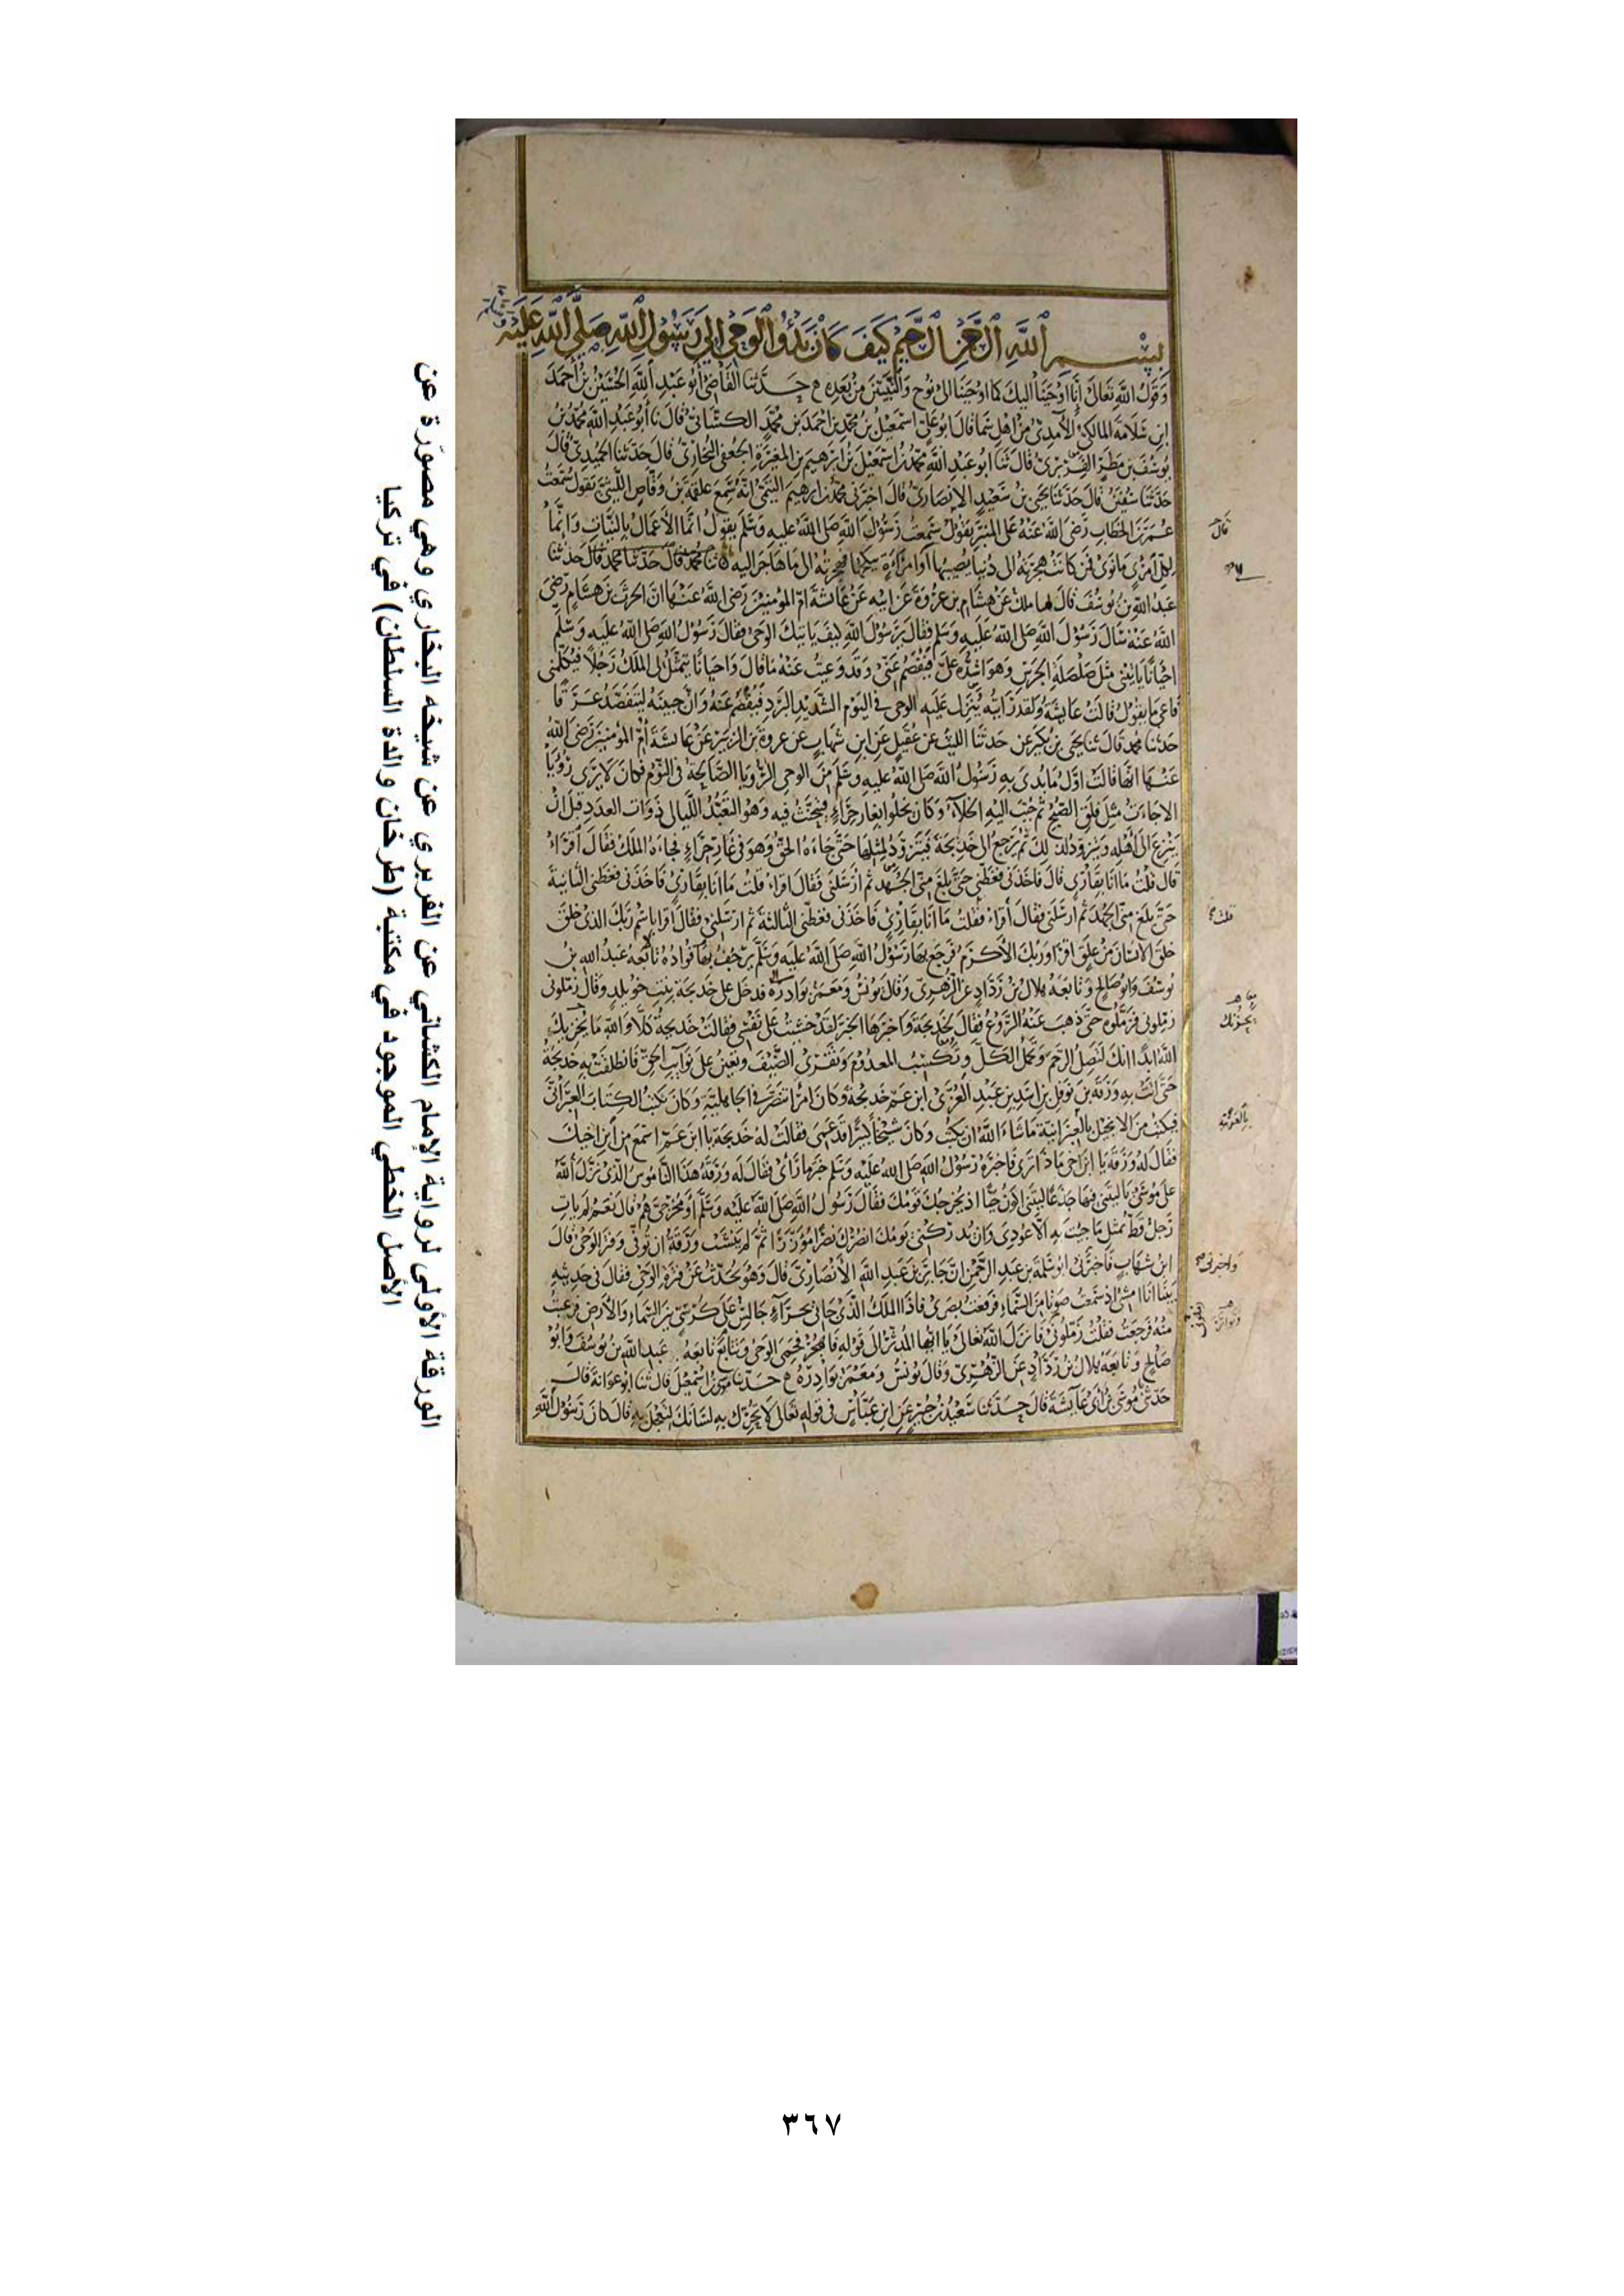 بسم الله الرحمن الرحيم كيف كان بدؤ الوحي الى رسول الله صلى الله عليه
وسلم
وَقَوْل الله تعالى إنا اوحينا اليك كما اوحينا الى نوح والنبيين من بعده ح حدثنا القاضي أبو عبد الله الحسين بن احمد
ابن سلامة المالكي الآمدي قال ابو علي اسمعيل بن محمد بن احمد بن محمد الكشاني قال نا أبو عبد الله محمد بن
يوسف بن مطر الفربري قال ثنا ابو عبد الله محمد بن اسمعيل بن ابرهيم بن المغيرة الجعفي البخاري قال حدثنا الحميدي قال
حدثنا سفين قال حدثنا يحيى بن سعيد الانصاري قال اخبرني محمد بن ابرهيم التيمي انه سمع علقمة بن وقاص الليثي يقول سمعت
عمر بن الخطاب رضى الله عنه على المنبر يقول سمعت رسول الله صلى الله عليه وسلم يقول انما الأعمال بالنيات وانما
لكل امرئ ما نوى فمن كانت هجرته الى دنيا يصيبها أو امرأة ينكحها فهجرته الى ما هاجر اليه ثنا محمد قال حدثنا محمد قال حدثنا
عبد الله بن يوسف قال ملك عن هشام بن عروة عن ابيه عن عائشة ام المؤمنين رضى الله عنها ان الحرث بن هشام رضى
الله عنه سأل رسول الله صلى الله عليه وسلم فقال يرسول الله كيف ياتيك الوحى فقال رسول الله صلى الله عليه وسلم
احيانا ياتينى مثل صلصلة الجرس وهو اشده على فيفصم عنى وقد وعيت عنه ما قال واحيانا يتمثل لى الملك رجلا فيكلمنى
فاعى ما يقول قالت عايشة ولقد رايته ينزل عليه الوحى فى اليوم الشديد البرد فيفصم عنه وان جبينه ليتفصد عرقا
حدثنا محمد قال ثنا يحيى بن بكير حدثنا الليث عن عقيل عن ابن شهاب عن عروة بن الزبير عن عائشة أم المؤمنين رضى الله
عنها انها قالت اول ما بدى به رسول الله صلى الله عليه وسلم من الوحى الرؤيا الصالحة فى النوم فكان لا يرى رؤيا
الا جاءت مثل فلق الصبح ثم حبب اليه الخلاء وكان يخلوا بغار حراء فيتحنث فيه وهو التعبد الليالى ذوات العدد قبل ان
ينزع الى أهله ويتزود لذلك ثم يرجع الى خديجة فيتزود لمثلها حتى جاءه الحق وهو فى غار حراء فجاءه الملك فقال اقراء
قال قلت ما انا بقارى قال فاخذنى فغطنى حتى بلغ منى الجهد ثم ارسلنى فقال اقراء قلت ما انا بقارى فاخذنى فغطنى الثانية
حتى بلغ منى الجهد ثم أرسلنى فقال أقراء فقلت ما انا بقارى فاخذنى فغطنى الثالثة ثم ارسلنى فقال اقرا باسم ربك الذى خلق
خلق الانسان من علق اقرا وربك الأكرم فرجع بها رسول الله صلى الله عليه وسلم يرجف بها فواده تابعه عبد الله بن
يوسف وابو صالح وتابعه هلال بن رداد عن الزهرى وقال يونس ومعمر بوادره فدخل على خديجة بنت خويلد وقال زملونى
زملونى فزملوه حتى ذهب عنه الروع فقال لخديجة واخبرها الخبر لقد خشيت على نفسى فقالت خديجة كلا والله ما يخزيك
الله ابدا انك لتصل الرحم وتحمل الكل وتكسب المعدوم وتقرى الضيف وتعين على نوايب الحق فانطلقت به خديجة
حتى اتت به ورقة بن نوفل بن اسد بن عبد العزى ابن عم خديجة وكان امرا تنصر فى الجاهلية وكان يكتب الكتاب العبرانى
فيكتب من الانجيل بالعبرانية ما شاء الله ان يكتب وكان شيخا كبيرا قد عمى فقالت له خديجة يا ابن عم اسمع من ابن اخيك
فقال له ورقة يا ابن اخى ماذا ترى فاخبره رسول الله صلى الله عليه وسلم خبر ما راى فقال له ورقة هذا الناموس الذى نزل الله
على موسى يا ليتنى فيها جذعا ليتنى اكون حيا اذ يخرجك قومك فقال رسول الله صلى الله عليه وسلم أو مخرجى هم قال نعم لم يات
رجل قط بمثل ما جيت به الا عودى وان يدركنى يومك انصرك نصرا مؤزرا ثم لم ينشب ورقة ان توفى وفتر الوحى قال
ابن شهاب فاخبرنى ابو سلمة بن عبد الرحمن ان جابر بن عبد الله الأنصارى قال وهو يحدث عن فترة الوحى فقال فى حديثه
بينا انا امشى اذ سمعت صوتا من السماء فرفعت بصرى فاذا الملك الذى جانى بحراء جالس على كرسى بين السماء والأرض فرعبت
منه فرجعت فقلت زملونى فانزل الله تعالى يا ايها المدثر الى قوله فاهجر فحمى الوحى وتتابع تابعه عبد الله بن يوسف وابو
صالح وتابعه هلال بن رداد عن الزهرى وقال يونس ومعمر بوادره ح حدثنا موسى بن اسمعيل قال ثنا ابو عوانة قال
حدثنى موسى بن أبى عايشة قال حدثنا سعيد بن جبير عن ابن عباس فى قوله تعالى لا تحرك به لسانك لتعجل به قال كان رسول الله
قال
قلت
يحزنك
بالعربية
واخبرنى
الورقة الأولى لرواية الإمام الكشاني عن الفربري عن شيخه البخاري وهي مصورة عن
الأصل الخطي الموجود في مكتبة (طرخان والدة السلطان) في تركيا
٣٦٧